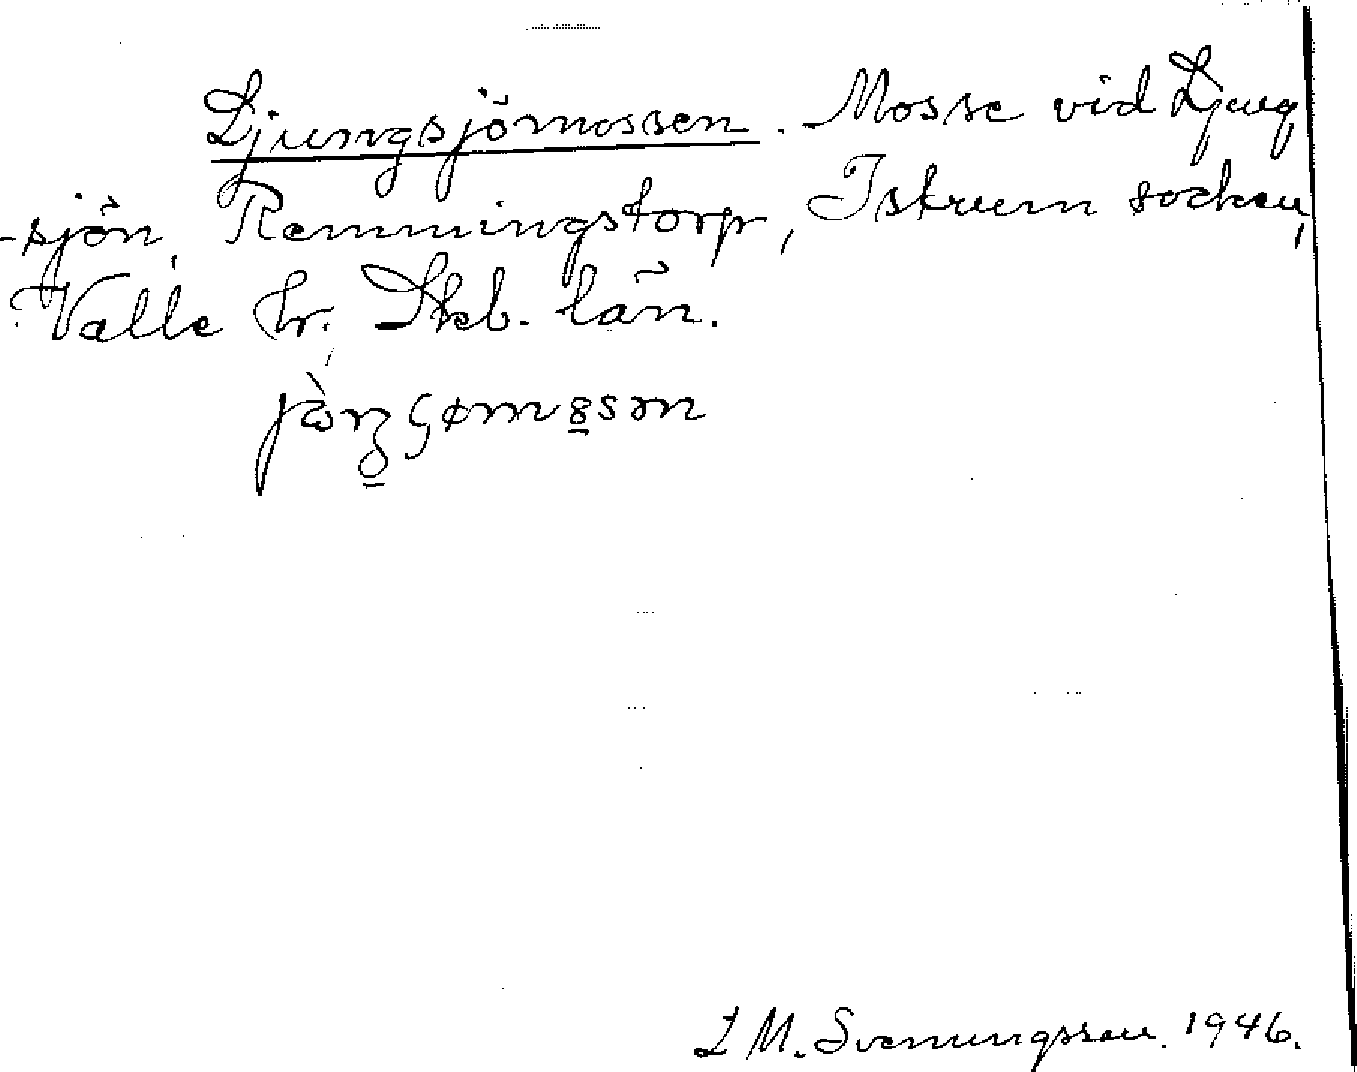 Ljungsjömossen. Mosse vid Ljung
-sjön, Remmingstorp, Istrum socken,
Valle hr. Skb. län.
L M. Svenungsson. 1946.